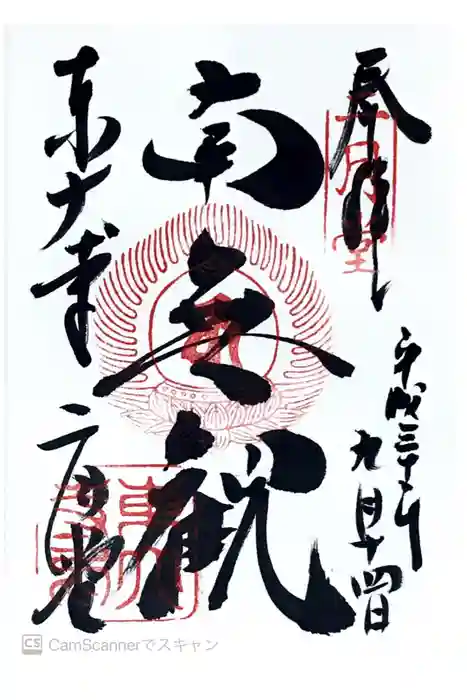 奉拝
二月堂
平成三十年
九月十四日
南無観
東大寺
二月堂
CamScannerでスキャン